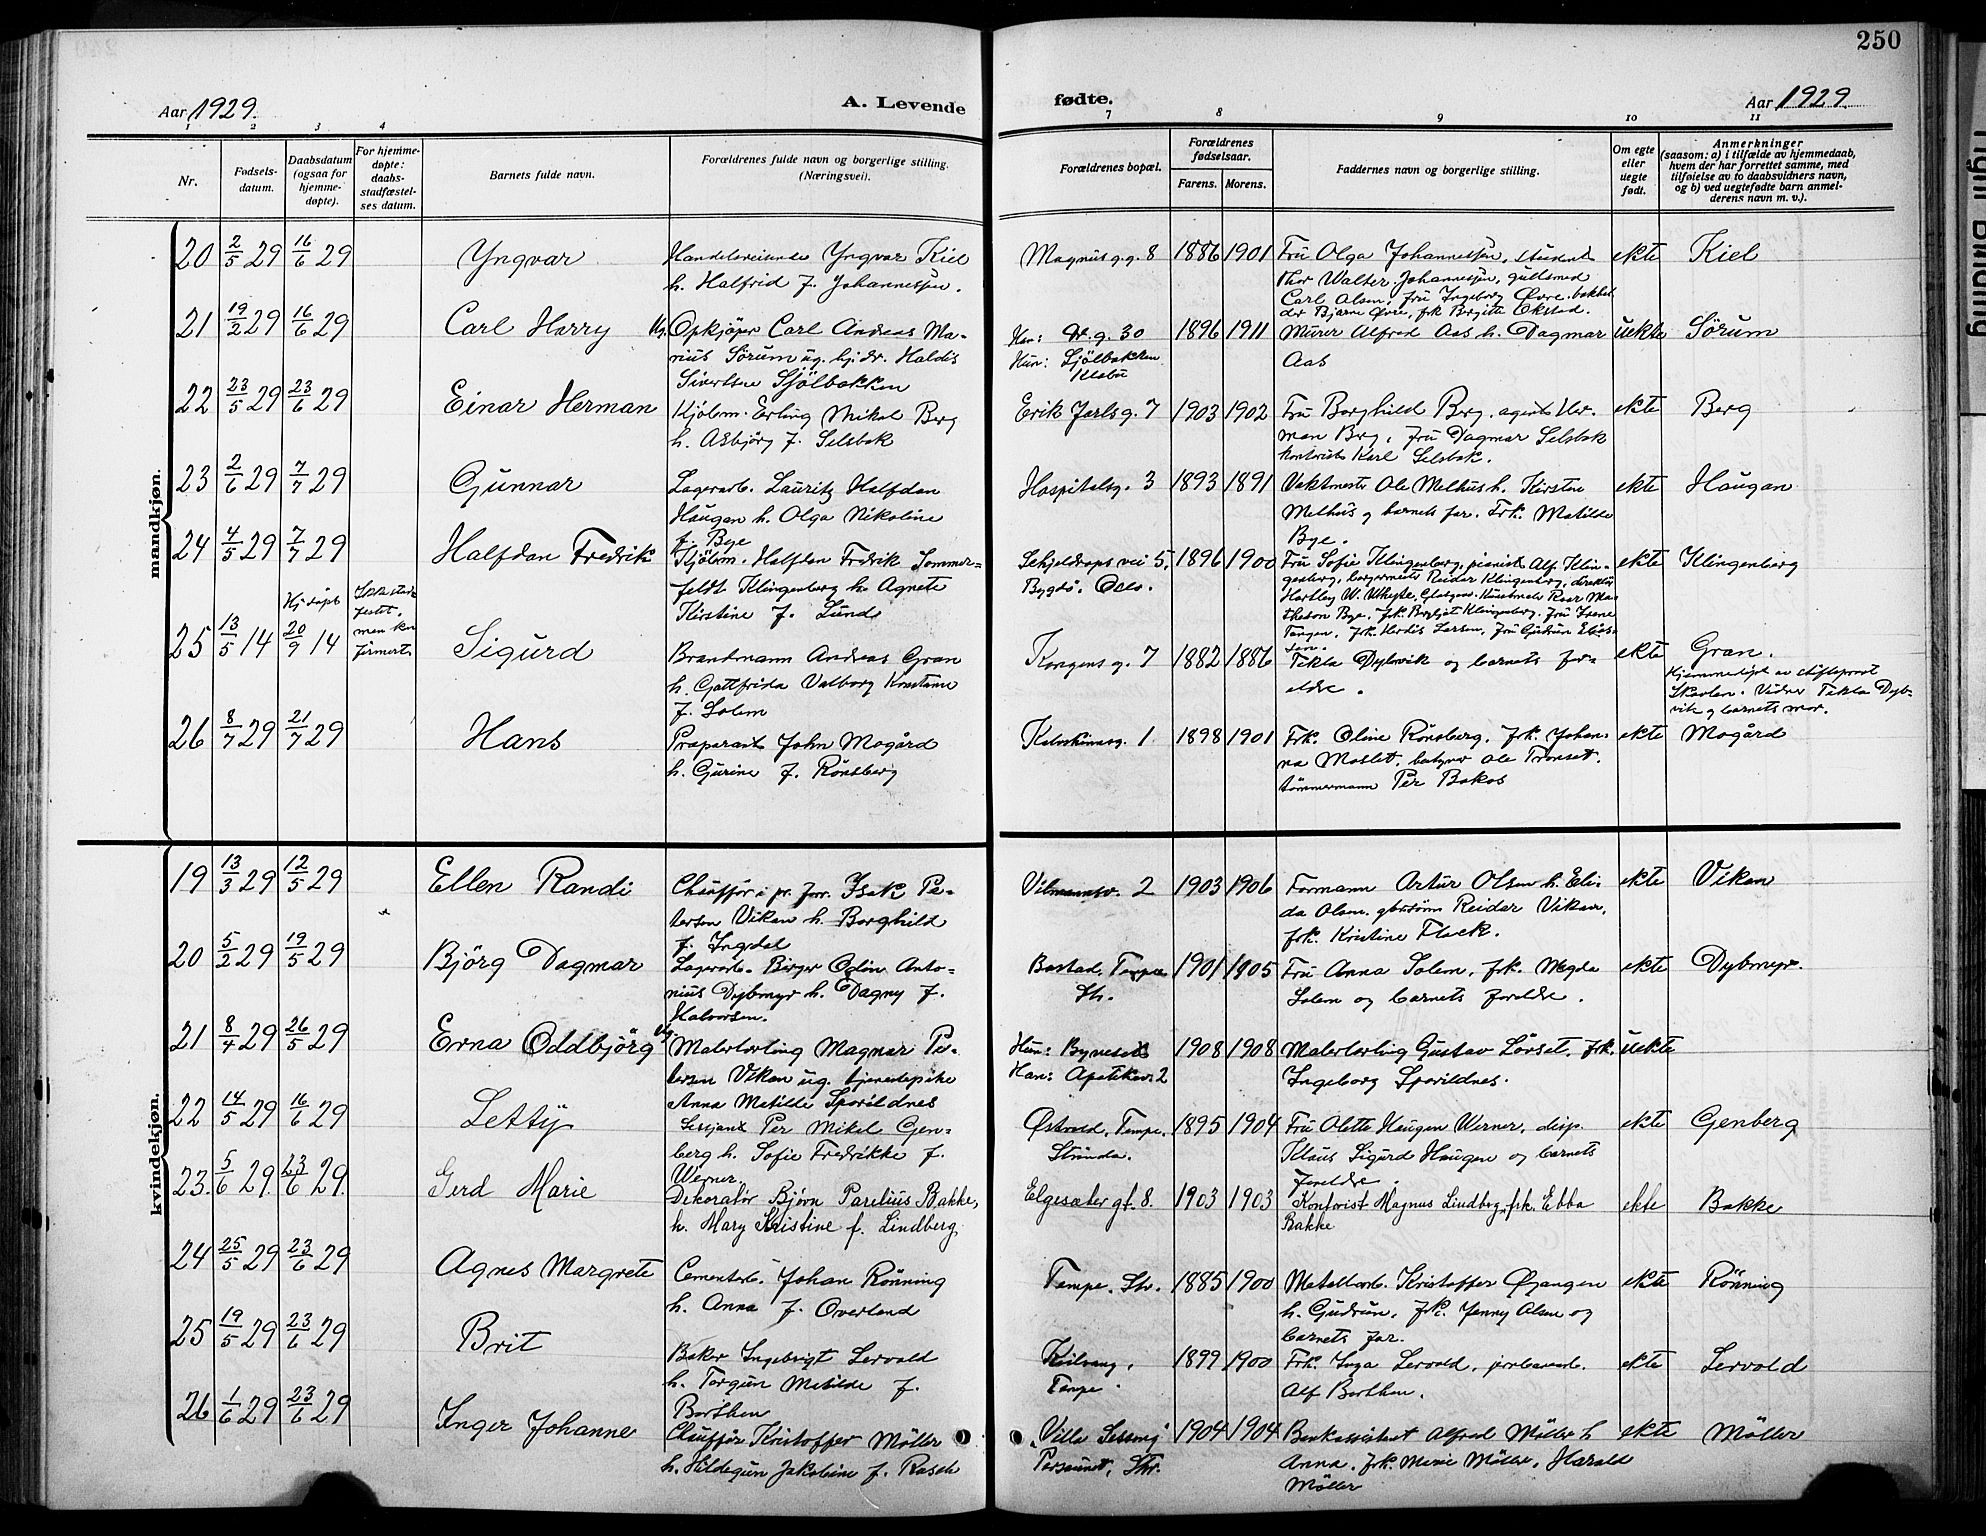 250
Aar 1929.
A. Levende
fødte.
Aar 1929.
1 2 3 4
7 8 9 10 11
Nr.
Fødsels-
datum.
Daabsdatum
(ogsaa for
hjemme-
døpte).
For hjemme-
døpte:
daabs-
stadfæstel-
ses datum.
Barnets fulde navn.
Forældrenes fulde navn og borgerlige stilling.
(Næringsvei).
Forældrenes bopæl.
Forældrenes
fødselsaar.
Farens. Morens.
Faddernes navn og borgerlige stilling.
Om egte
eller
uegte
født.
Anmerkninger
(saasom: a) i tilfælde av hjemmedaab,
hvem der har forrettet samme, med
tilføielse av to daabsvidners navn,
og b) ved uegtefødte barn anmel-
derens navn m. v.).
mandkjøn.
20 2/5 29 16/6 29 Yngvar
Handelsreisende Yngvar Kiel
h. Halfrid f. Johannessen.
Magnus g. 8 1886 1901
Fru Olga Johannessen, student
Thor Walter Johannessen, gullsmed
Carl Alsen, fru Ingeborg Øvre, bokhol
der Bjarne Øvre, frk Birgitte Ekstad.
ekte Kiel
21 19/2 29 16/6 29 Carl Harry
Ug. Opkjøper Carl Andreas Ma-
rius Sörum ug. hj.dr. Haldis
Sivertsen Sjölbakken
Han: Dr. g. 30
Hun: Sjölbakken
Klæbu
1896 1911
Murer Alfred Aas h. Dagmar
Aas
uekte Sörum
22 23/5 29 23/6 29 Einar Herman
Kjöbm. Erling Mikal Berg
h. Asbjörg f. Selsbak
Erik Jarlsg. 7 1903 1902
Fru Borghild Berg, agent Her-
man Berg, Fru Dagmar Selsbak
kontorist Karl Selsbak.
ekte Berg
23 2/6 29 7/7 29 Gunnar
Lagerarb. Lauritz Halfdan
Haugan h. Olga Nikoline
f. Bye
Hospitalsg. 3 1893 1891
Vaktmester Ole Melhus h. Kirsten
Melhus og barnets far. Frk. Matilde
Bye.
ekte Haugan
24 4/5 29 7/7 29 Halfdan Fredrik
Kjöbm. Halfdan Fredrik Sommer-
feldt Klingenberg h. Agnete
Kirstine f. Lund
Schjeldraps vei 5,
Bygdö. Oslo.
1896 1900
Fru Sofie Klingenberg, pianist Alf Klin-
genberg, borgermester Reidar Klingenberg, direktør
Hartley W. Whyte, Glasgow. Kunstmaler Roar Ma-
theson Bye, frk. Bergljot Klingenberg, Fru Irene
Tangen, frk. Herdis Larsen, Fru Gudrun Elias-
sen.
ekte Klingenberg
25 13/5 14 Hj.døpt 20/9 14
Ikke stad
festet,
men kon
firmert.
Sigurd
Brandmann Andreas Gran
h. Gottfrida Valborg Konstanse
f. Solem
Kongensg. 7 1882 1886
Tekla Dybvik og barnets for-
eldre.
ekte Gran.
Hjemmedöpt av stiftsprost
Skavlan. Vidner Tekla Dyb-
vik og barnets mor.
26 8/7 29 21/7 29 Hans
Preparant John Mogård
h. Gurine f. Rönsberg
Kalvskinnsg. 1 1898 1901
Frk. Oline Rönsberg, frk. Johan-
na Moslet, betjent Ole Tronset,
tömmermann Per Bakos
ekte Mogård
kvindekjøn.
19 13/3 29 12/5 29 Ellen Randi
Chauffør i pr. forr. Isak Pe-
tersen Viken h. Borghild
f. Ingdal
Vilmannsv. 2 1903 1906
Formann Artur Olsen h. Eli-
da Olsen, gbrsönn Reidar Viken,
frk. Kristine Flack.
ekte Viken
20 5/2 29 19/5 29 Björg Dagmar
Lagerarb. Birger Odin Anto-
nius Dybmyr h. Dagny f.
Halvorsen.
Bostad, Tempe
Str.
1901 1905
Fru Anna Solem, frk. Magda
Solem og barnets foreldre.
ekte Dybmyr.
21 8/4 29 26/5 29 Erna Oddbjörg
Ug. Malerlærling Magnar Pe-
tersen Viken ug. tjenestepike
Anna Matilde Sporildnes
Hun: Byneset
Han: Apotekerv. 2
1908 1908
Malerlærling Gustav Lörset, frk.
Ingeborg Sporildnes.
uekte
22 14/5 29 16/6 29 Letty
Sersjant Per Mikal Gen-
berg h. Sofie Fredrikke f.
Werner.
Østvold, Tempe,
Strinda.
1895 1904
Fru Olette Haugen Werner, disp.
Klaus Sigurd Haugen og barnets
foreldre.
ekte Genberg
23. 5/6 29. 23/6 29. Gerd Marie
Dekoratör Björn Parelius Bakke,
h. Mary Kristine f. Lindberg.
Elgesæter gt. 8. 1903 1903
Kontorist Magnus Lindberg, frk. Ebba
Bakke
ekte Bakke
24 25/5 29 23/6 29 Agnes Margrete
Cementarb. Johan Rönning
h. Anna f. Overland
Tempe. Str. 1885 1900
Metallarb. Kristoffer Øyangen
h. Gudrun, frk. Jenny Olsen og
barnets far.
ekte Rönning
25 19/5 29 23/6 29 Brit
Baker Ingebrigt Lervold
h. Torgun Matilde f.
Berthen
Tempe. 1899 1900
Frk. Inga Lervold, jernbanearb.
Alf Berthen.
ekte Lervold
26 1/6 29 23/6 29 Inger Johanne
Chauffør Kristoffer Möller
h. Hildegun Jakobine f. Rasch
Villa
Persaunet, Str.
1904 1904
Bankassistent Alfred Möller h
Anna, frk. Marie Möller, Harald
Möller
ekte Möller